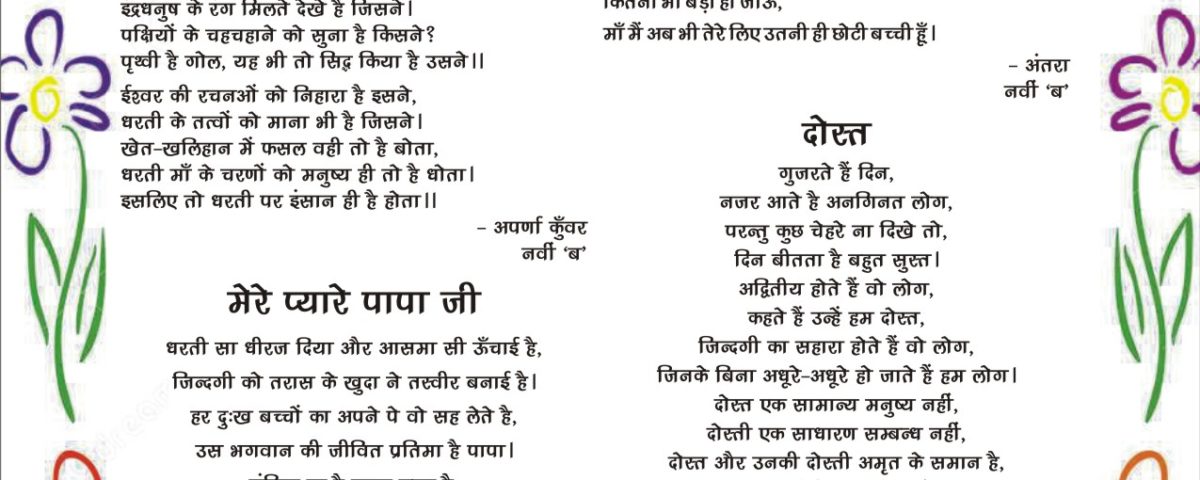 इद्रधनुष के रग मिलते देखे है जिसने।
पक्षियों के चहचहाने को सुना है किसने?
पृथ्वी है गोल, यह भी तो सिद्ध किया है उसने।।
ईश्वर की रचनओं को निहारा है इसने,
धरती के तत्वों को माना भी है जिसने।
खेत-खलिहान में फसल वही तो है बोता,
धरती माँ के चरणों को मनुष्य ही तो है धोता।
इसलिए तो धरती पर इंसान ही है होता।।
- अपर्णा कुँवर
नवीं ‘ब’
मेरे प्यारे पापा जी
धरती सा धीरज दिया और आसमा सी ऊँचाई है,
जिन्दगी को तरास के खुदा ने तस्वीर बनाई है।
हर दुःख बच्चों का अपने पे वो सह लेते है,
उस भगवान की जीवित प्रतिमा है पापा।
कितनी भी बड़ी हो जाऊँ,
माँ मैं अब भी तेरे लिए उतनी ही छोटी बच्ची हूँ।
- अंतरा
नवीं ‘ब’
दोस्त
गुजरते हैं दिन,
नजर आते है अनगिनत लोग,
परन्तु कुछ चेहरे ना दिखे तो,
दिन बीतता है बहुत सुस्त।
अद्वितीय होते हैं वो लोग,
कहते हैं उन्हें हम दोस्त,
जिन्दगी का सहारा होते हैं वो लोग,
जिनके बिना अधूरे-अधूरे हो जाते हैं हम लोग।
दोस्त एक सामान्य मनुष्य नहीं,
दोस्ती एक साधारण सम्बन्ध नहीं,
दोस्त और उनकी दोस्ती अमृत के समान है,